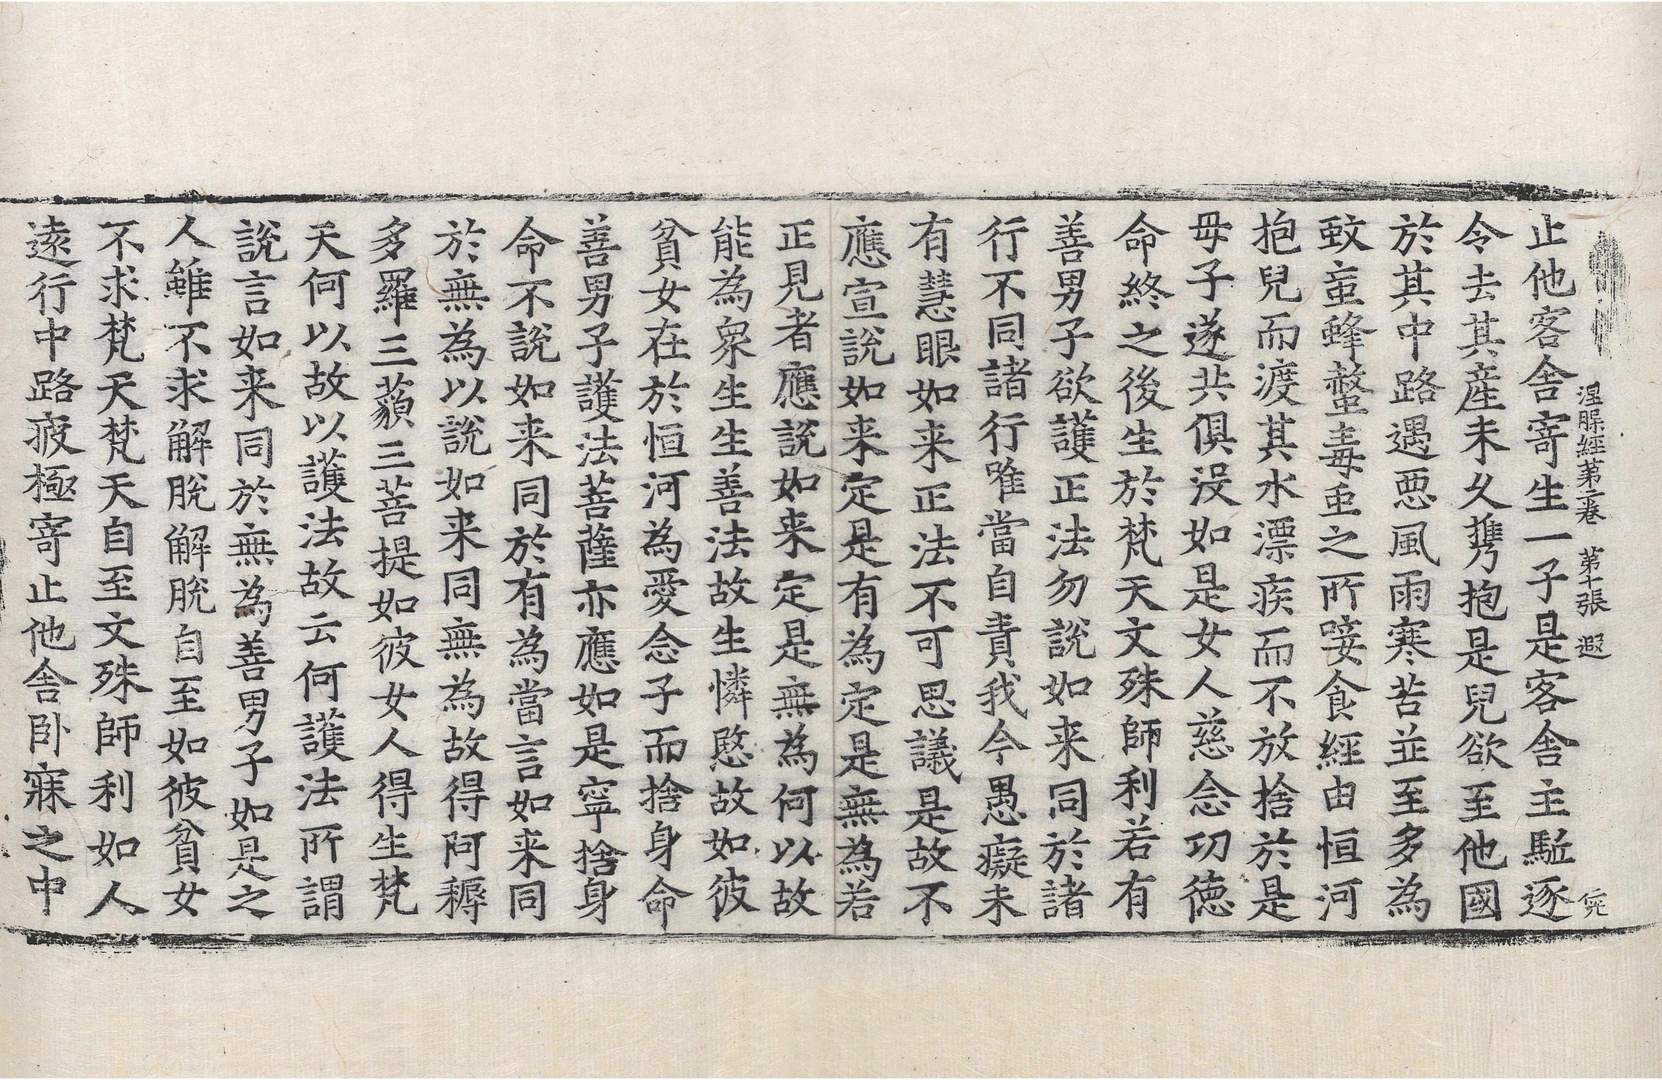 涅槃經第二卷 第十張 遐
止他客舍寄生一子是客舍主駈逐
令去其產未久攜抱是兒欲至他國
於其中路遇惡風雨寒苦並至多為
蚊䖟蜂螫毒䖝之所唼食經由恒河
抱兒而渡其水漂疾而不放捨於是
母子遂共俱沒如是女人慈念功德
命終之後生於梵天文殊師利若有
善男子欲護正法勿說如来同於諸
行不同諸行唯當自責我今愚癡未
有慧眼如来正法不可思議是故不
應宣說如来定是有為定是無為若
正見者應說如来定是無為何以故
能為衆生生善法故生憐愍故如彼
貧女在於恒河為愛念子而捨身命
善男子護法菩薩亦應如是寧捨身
命不說如来同於有為當言如来同
於無為以說如来同無為故得阿耨
多羅三藐三菩提如彼女人得生梵
天何以故以護法故云何護法所謂
說言如来同於無為善男子如是之
人雖不求解脫解脫自至如彼貧女
不求梵天梵天自至文殊師利如人
遠行中路疲極寄止他舍卧寐之中